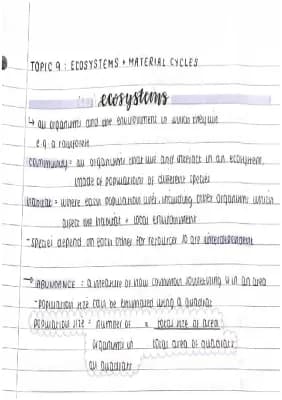 TOPIC 9 : ECOSYSTEMS + MATERIAL CYCLES
ecosystems
↳ all organisms and the environment in which they live
e.g. a rainforest
community = all organisms that live and interact in an ecosystem,
made of populations of different species
habitat = where each population lives, including other organisms which
affect the habitat + local environment
- species depend on each other for resources so are interdependent
→ ABUNDANCE : a measure of how common something is in an area
- population size can be estimated using a quadrat
population size = number of x total size of area
organisms in total area of quadrats
all quadrats